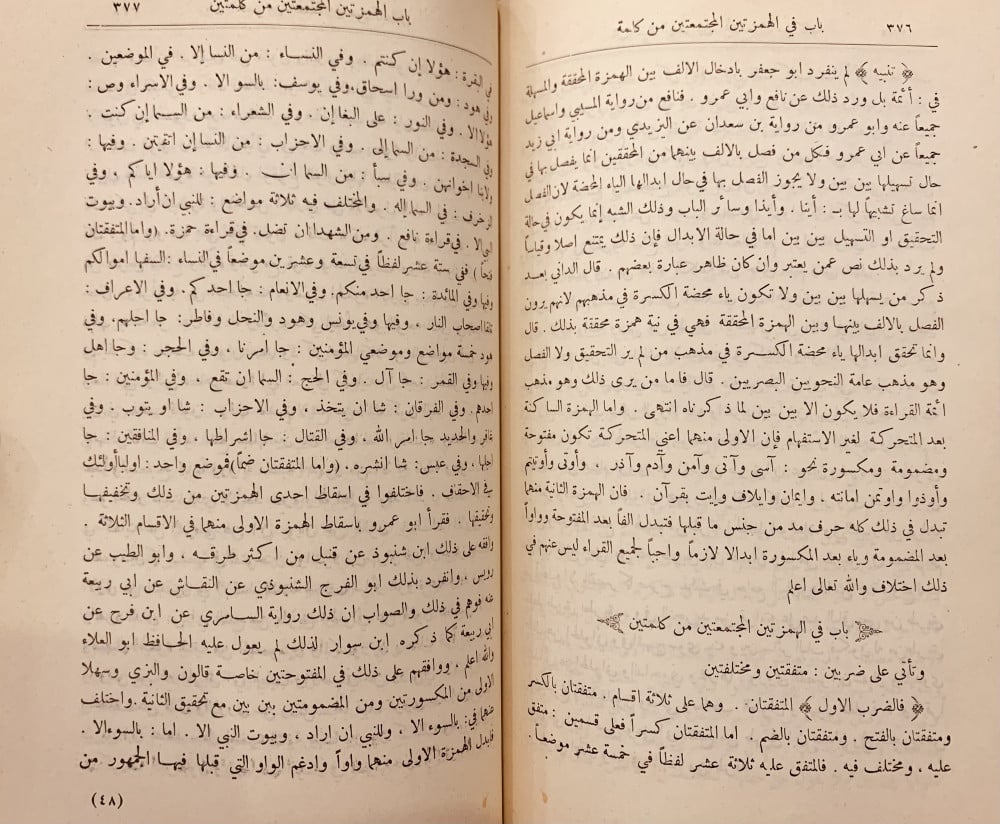 ٣٧٦ باب في الهمزتين المجتمعتين من كلمة
﴿ تنبيه ﴾ لم ينفرد ابو جعفر بادخال الالف بين الهمزة المحققة والمسهلة
في : أئمة بل ورد ذلك عن نافع وابي عمرو . فنافع من رواية المسيبي واسماعيل
جميعاً عنه وابو عمرو من رواية بن سعدان عن اليزيدي ومن رواية ابي زيد
جميعاً عن ابي عمرو فكل من فصل بالالف بينهما من المحققين انما يفصل بها في
حال تسهيلها بين بين ولا يجوز الفصل بها في حال ابدالها الياء المحضة لان الفصل
انما ساغ تشبيهاً لها بـ : أينا . وأيذا وسائر الباب وذلك الشبه إنما يكون في حالة
التحقيق او التسهيل بين بين اما في حالة الابدال فإن ذلك يمتنع اصلا وقياساً
ولم يرد بذلك نص عمن يعتبر وان كان ظاهر عبارة بعضهم . قال الداني بعد
ذكر من يسهلها بين بين ولا تكون ياء محضة الكسرة في مذهبهم لانهم يرون
الفصل بالالف بينها وبين الهمزة المحققة فهي في نية همزة محققة بذلك . قال
وانما تحقق ابدالها ياء محضة الكسرة في مذهب من لم ير التحقيق ولا الفصل
وهو مذهب عامة النحويين البصريين . قال فاما من يرى ذلك وهو مذهب
ائمة القراءة فلا يكون الا بين بين لما ذكرناه انتهى . واما الهمزة الساكنة
بعد المتحركة لغير الاستفهام فإن الاولى منهما اعني المتحركة تكون مفتوحة
ومضمومة ومكسورة نحو : آسى وآتى وآمن وآدم وآذر ، وأوتى وأوتيتم
وأوذوا واوتمن امانته . وايمان وايلاف وإيت بقرآن . فان الهمزة الثانية منهما
تبدل في ذلك كله حرف مد من جنس ما قبلها فتبدل الفاً بعد المفتوحة وواواً
بعد المضمومة وياء بعد المكسورة ابدالا لازماً واجباً لجميع القراء ليس عنهم في
ذلك اختلاف والله تعالى اعلم
باب في الهمزتين المجتمعتين من كلمتين
وتأتي على ضربين : متفقتين ومختلفتين
﴿ فالضرب الاول ﴾ المتفقتان . وهما على ثلاثة اقسام . متفقتان بالكسر
ومتفقتان بالفتح . ومتفقتان بالضم . اما المتفقتان كسراً فعلى قسمين : متفق
عليه ، ومختلف فيه . فالمتفق عليه ثلاثة عشر لفظاً في خمسة عشر موضعاً .
باب الهمزتين المجتمعتين من كلمتين ٣٧٧
في البقرة : هؤلا إن كنتم . وفي النساء : من النسا إلا . في الموضعين .
وفي هود : ومن ورا اسحاق . وفي يوسف: بالسو الا . وفي الاسراء وص :
هؤلا الا . وفي النور : على البغا إن . وفي الشعراء : من السما إن كنت .
وفي السجدة : من السما إلى . وفي الاحزاب : من النسا إن اتقيتن . وفيها :
ولا ابنا اخوانهن . وفي سبأ : من السما ان . وفيها : هؤلا اياكم ، وفي
الزخرف : في السما إله . والمختلف فيه ثلاثة مواضع : للنبي ان أراد . وبيوت
النبي الا . في قراءة نافع . ومن الشهدا ان تضل. في قراءة حمزة. (واما المتفقتان
فتحاً) ففي ستة عشر لفظاً في تسعة وعشرين موضعاً في النساء : السفها اموالكم
وفيها وفي المائدة : جا احد منكم. وفي الانعام : جا احدكم. وفي الاعراف :
تلقا اصحاب النار ، وفيها وفي يونس وهود والنحل وفاطر: جا اجلهم. وفي
هود خمسة مواضع وموضعي المؤمنين : جا امرنا ، وفي الحجر : وجا اهل
وفيها وفي القمر : جا آل . وفي الحج : السما ان تقع ، وفي المؤمنين : جا
احدهم. وفي الفرقان : شا ان يتخذ ، وفي الاحزاب : شا او يتوب . وفي
غافر والحديد جا امر الله ، وفي القتال : جا اشراطها ، وفي المنافقين : جا
اجلها ، وفي عبس: شا انشره . (واما المتفقتان ضماً) فموضع واحد : اوليا أولئك
في الاحقاف . فاختلفوا في اسقاط احدى الهمزتين من ذلك وتخفيفها
وتحقيقها . فقرأ ابو عمرو باسقاط الهمزة الاولى منهما في الاقسام الثلاثة .
وافقه على ذلك ابن شنبوذ عن قنبل من اكثر طرقه ، وابو الطيب عن
رويس ، وانفرد بذلك ابو الفرج الشنبوذي عن النقاش عن ابي ربيعة
عنه فوهم في ذلك والصواب ان ذلك رواية السامري عن ابن فرح عن
ابي ربيعة كما ذكره ابن سوار لذلك لم يعول عليه الحافظ ابو العلاء
والله اعلم ، ووافقهم على ذلك في المفتوحتين خاصة قالون والبزي وسهلا
الاولى من المكسورتين ومن المضمومتين بين بين مع تحقيق الثانية. واختلف
عنهما في: بالسوء الا ، وللنبي ان اراد ، وبيوت النبي الا . اما : بالسوء الا .
فابدل الهمزة الاولى منهما واواً وادغم الواو التي قبلها فيها الجمهور من
(٤٨)